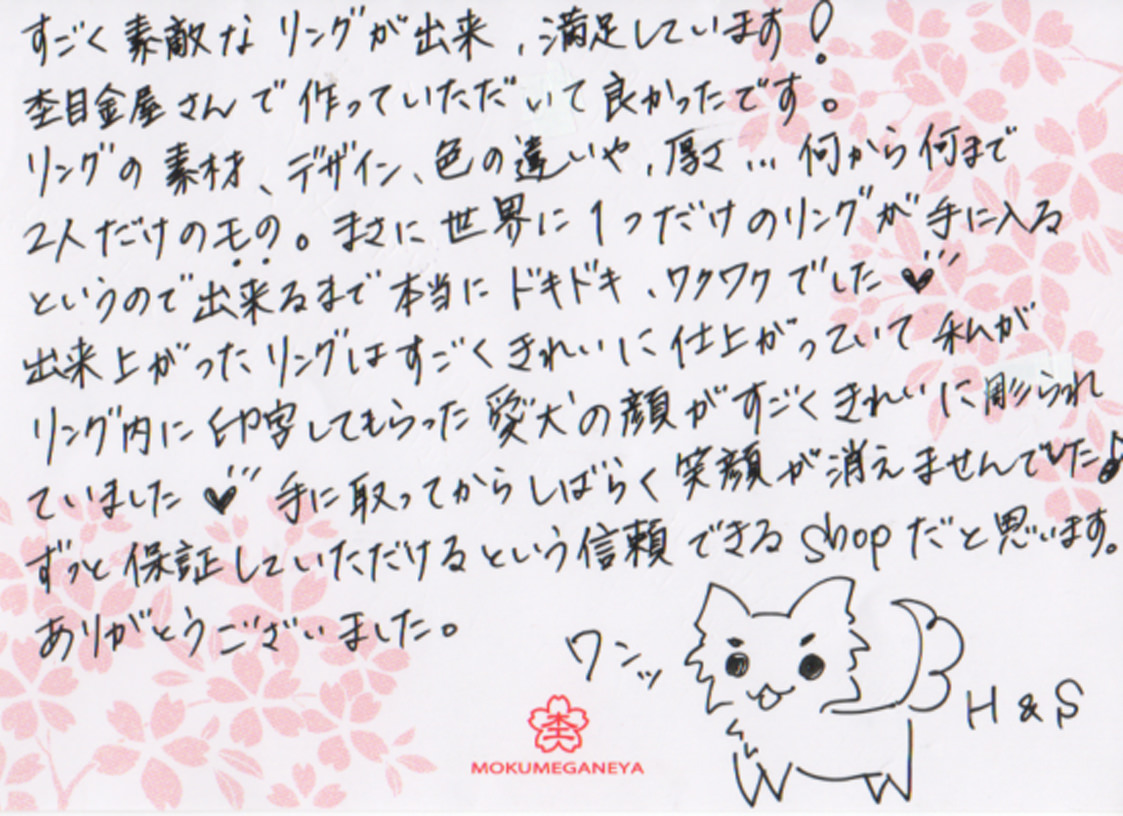 すごく素敵なリングが出来、満足しています！
杢目金屋さんで作っていただいて良かったです。
リングの素材、デザイン、色の違いや、厚さ…何から何まで
2人だけのもの。まさに世界に1つだけのリングが手に入る
というので出来るまで本当にドキドキ、ワクワクでした♥
出来上がったリングはすごくきれいに仕上がっていて私が
リング内に印字してもらった愛犬の顔がすごくきれいに彫られ
ていました♥手に取ってからしばらく笑顔が消えませんでした♪
ずっと保証していただけるという信頼できるshopだと思います。
ありがとうございました。
ワンッ
H & S
杢
MOKUMEGANEYA